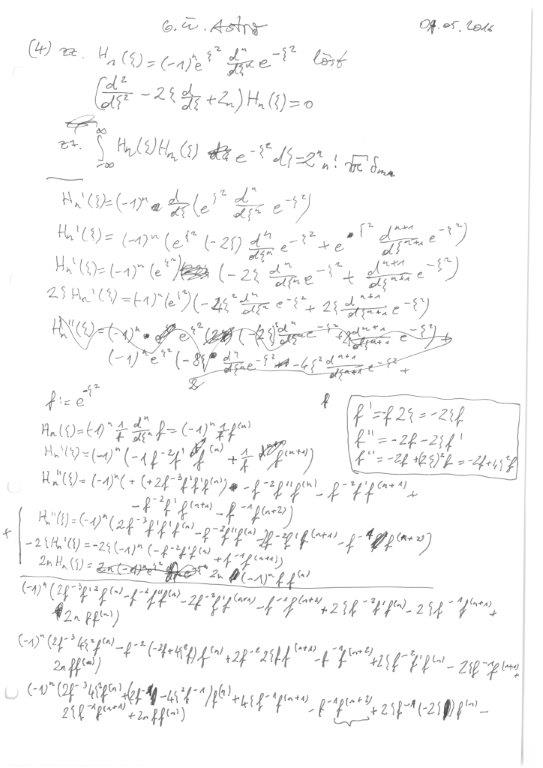 6. Ü. Astro 04.05.2016
(4) zz. Hn(ξ) = (-1)^n e^{ξ²} d^n/dξ^n e^{-ξ²} löst
(d²/dξ² - 2ξ d/dξ + 2n) Hn(ξ) = 0
zz. ∫_{-∞}^{∞} Hn(ξ) Hm(ξ) e^{-ξ²} dξ = 2^n n! √π δmn
Hn'(ξ) = (-1)^n d/dξ (e^{ξ²} d^n/dξ^n e^{-ξ²})
Hn'(ξ) = (-1)^n (e^{ξ²} (-2ξ) d^n/dξ^n e^{-ξ²} + e^{ξ²} d^{n+1}/dξ^{n+1} e^{-ξ²})
Hn'(ξ) = (-1)^n (e^{ξ²}) (-2ξ d^n/dξ^n e^{-ξ²} + d^{n+1}/dξ^{n+1} e^{-ξ²})
2ξ Hn'(ξ) = (-1)^n (e^{ξ²}) (-4ξ² d^n/dξ^n e^{-ξ²} + 2ξ d^{n+1}/dξ^{n+1} e^{-ξ²})
f := e^{-ξ²}
f' = f 2ξ = -2ξf
f'' = -2f - 2ξf'
f'' = -2f + (2ξ)²f = -2f + 4ξ²f
Hn(ξ) = (-1)^n 1/f d^n/dξ^n f = (-1)^n 1/f f^{(n)}
Hn'(ξ) = (-1)^n (-1 f^{-2} f' f^{(n)} + 1/f f^{(n+1)})
Hn''(ξ) = (-1)^n (+(+2f^{-3} f' f' f^{(n)}) - f^{-2} f'' f^{(n)} - f^{-2} f' f^{(n+1)} +
- f^{-2} f' f^{(n+1)} - f^{-1} f^{(n+2)})
Hn''(ξ) = (-1)^n (2f^{-3} f' f' f^{(n)} - f^{-2} f'' f^{(n)} - 2f^{-2} f' f^{(n+1)} - f^{-1} f^{(n+2)})
-2ξ Hn'(ξ) = -2ξ (-1)^n (-f^{-2} f' f^{(n)} + f^{-1} f^{(n+1)})
2n Hn(ξ) = 2n (-1)^n f f^{(n)}
(-1)^n (2f^{-3} f'² f^{(n)} - f^{-2} f'' f^{(n)} - 2f^{-2} f' f^{(n+1)} - f^{-1} f^{(n+2)} + 2ξ f^{-2} f' f^{(n)} - 2ξ f^{-1} f^{(n+1)} +
2n f f^{(n)})
(-1)^n (2f^{-3} 4ξ² f^{(n)} - f^{-2} (-2f + 4ξ²f) f^{(n)} + 2f^{-2} 2ξ f f^{(n+1)} - f^{-1} f^{(n+2)} + 2ξ f^{-2} f' f^{(n)} - 2ξ f^{-1} f^{(n+1)} +
2n f f^{(n)})
(-1)^n (2f^{-3} 4ξ² f^{(n)} + (2f^{-1} - 4ξ² f^{-1}) f^{(n)} + 4ξ f^{-1} f^{(n+1)} - f^{-1} f^{(n+2)} + 2ξ f^{-1} (-2ξ) f^{(n)} -
2ξ f^{-1} f^{(n+1)} + 2n f f^{(n)})